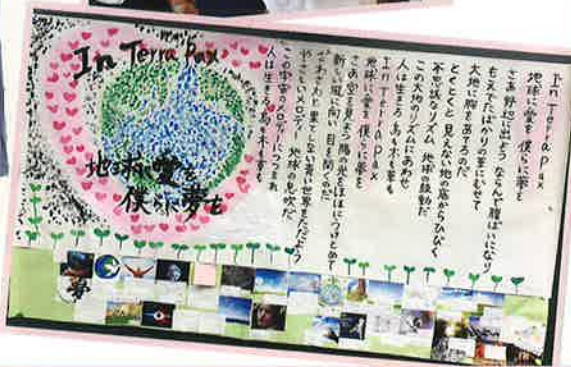 In Terra Pax
地球に愛を
僕らに夢を
In Terra Pax
地球に愛を 僕らに夢を
さあ野辺に出よう ならんで腹ばいになり
もえでたばかりの草にむせて
大地に胸をあてるのだ
とくとくと 見えない地の底からひびく
不思議なリズム 地球の鼓動だ
この大地のリズムにあわせ
人は生きる 鳥も木も草も
In Terra Pax
地球に愛を 僕らに夢を
さあ空を見よう 陽の光をほほにうけとめて
新しい風に向い 目を開くのだ
さわさわと 果てしない青い世界をただよう
やさしいメロデー 地球の息吹だ
この宇宙のメロデーにつつまれ
人は生きる 鳥も木も草も
夢